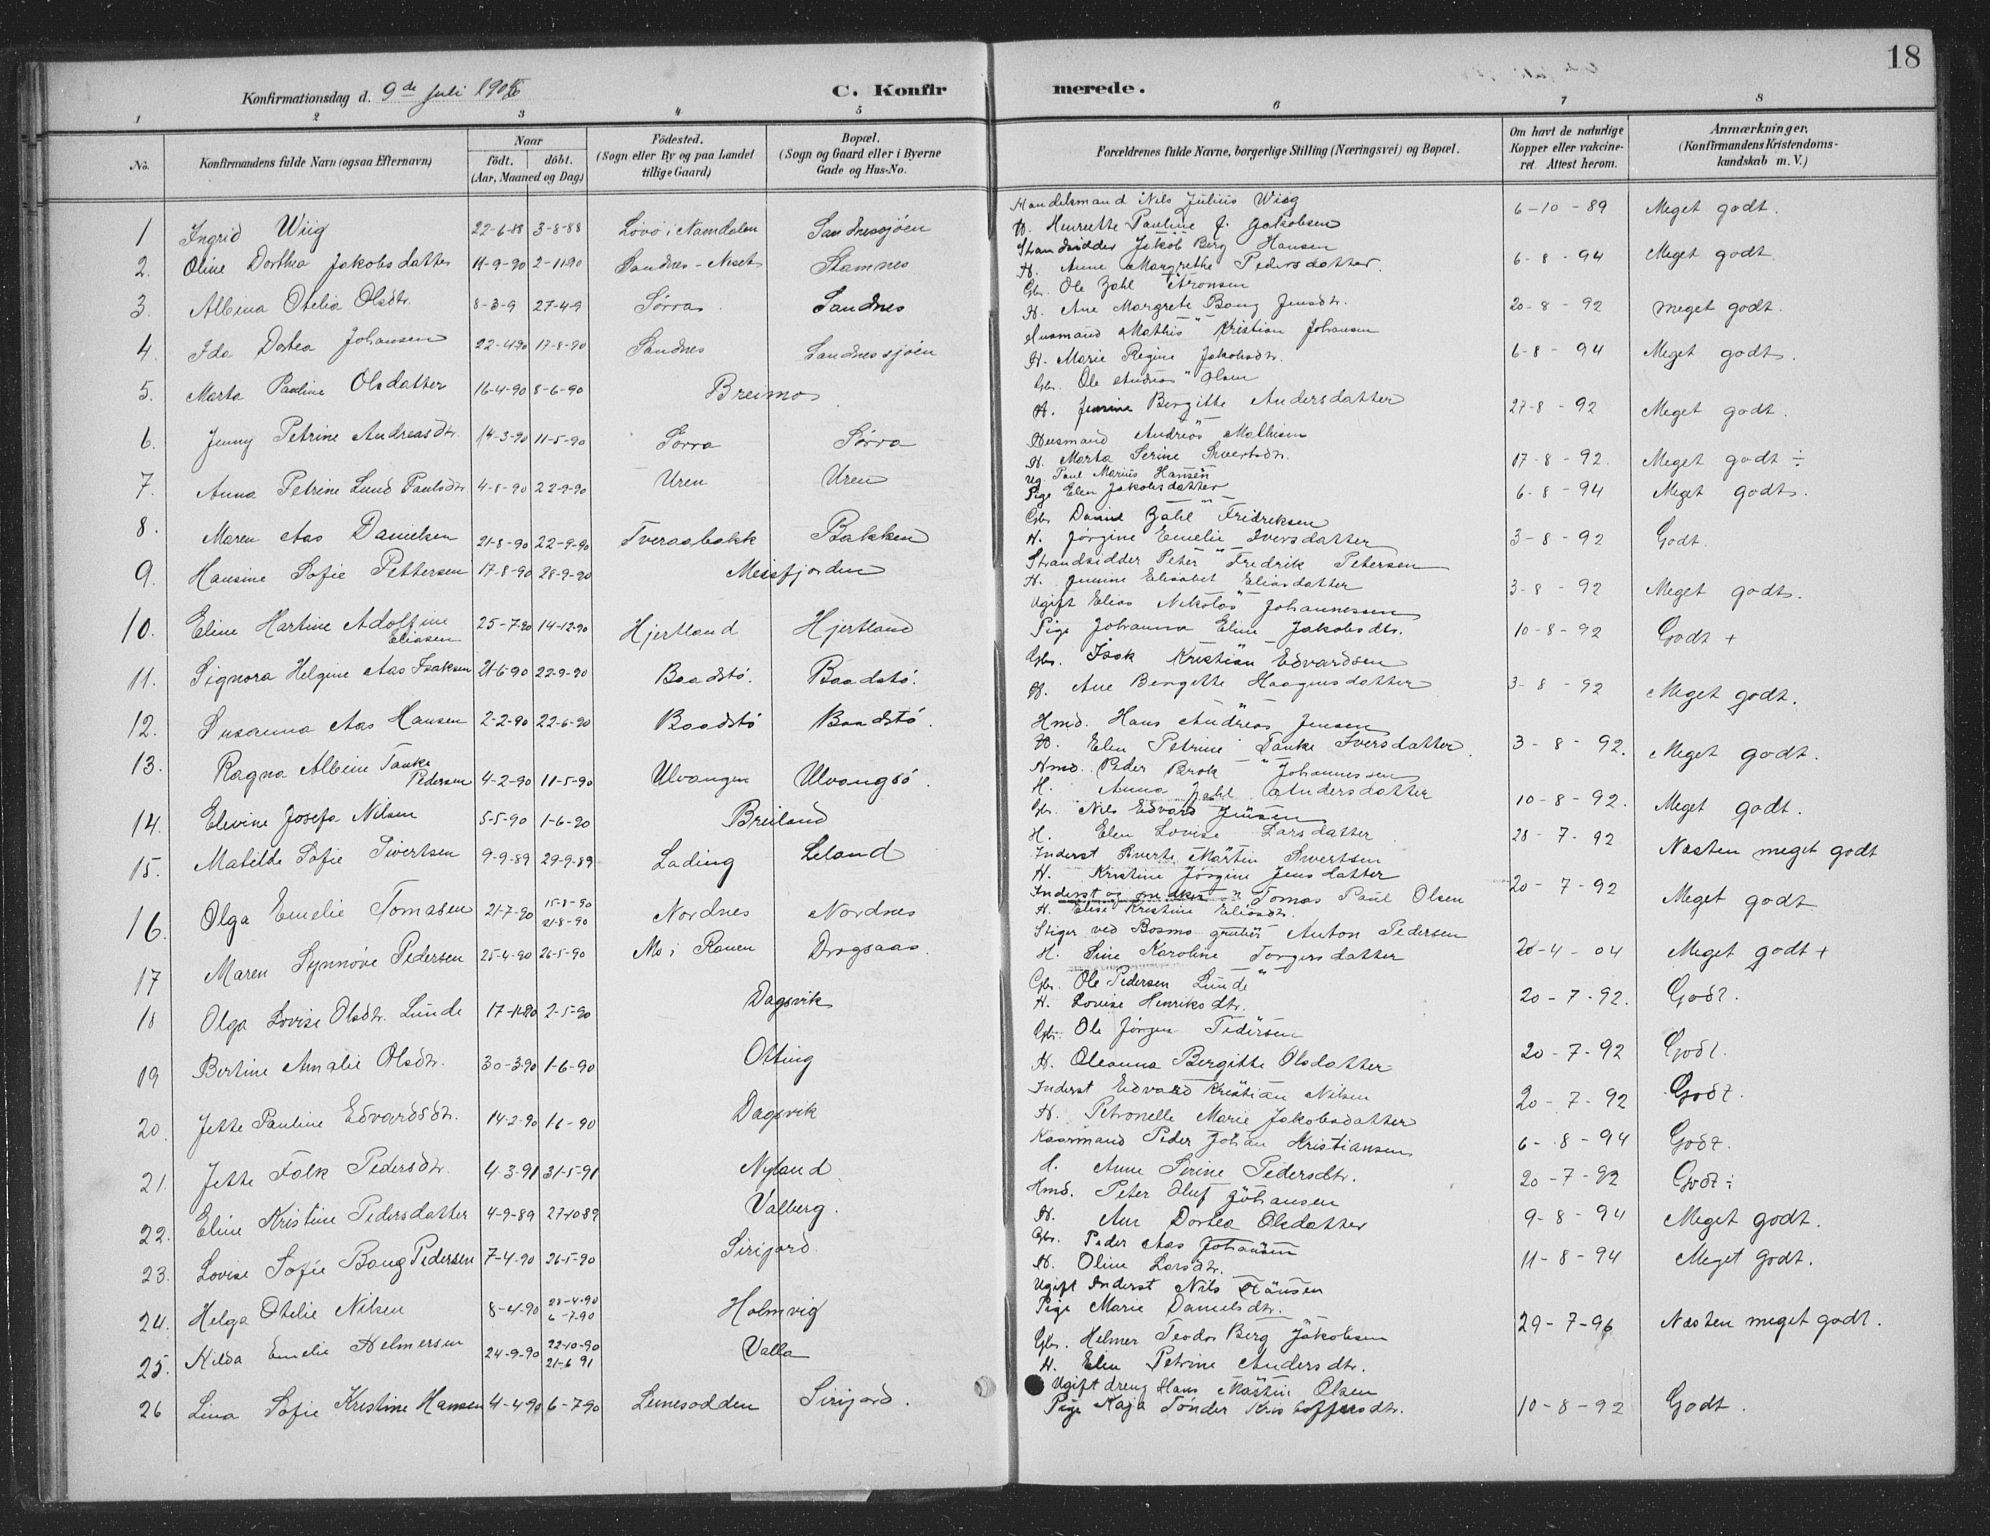 18
Konfirmationsdag d. 9de Juli 190
C. Konfir
merede.
1 2 3 4 5 6 7 8
No.
Konfirmandens fulde Navn (ogsaa Efternavn)
Naar
födt. döbt.
(Aar, Maaned og Dag)
Födested.
(Sogn eller By og paa Landet
tillige Gaard)
Bopæl.
(Sogn og Gaard eller i Byerne
Gade og Hus-No.
Forældrenes fulde Navne, borgerlige Stilling (Næringsvei) og Bopæl.
Om havt de naturlige
Kopper eller vakcine-
ret. Attest herom.
Anmærkninger.
(Konfirmandens Kristendoms-
kundskab m. V.)
Handelsmand Nils Julius Wiig
1 Ingrid Wiig 22-6-88 3-8-88 Lovö i Namdalen Sandnessjöen H. Henriette Pauline J. Jakobsen 6-10-89 Meget godt.
Strandsidder Jakob Berg Hansen
2. Oline Dorthea Jakobsdatter 11-9-90 2-11-90 Sandnes-Neset Stamnes H. Anne Margrethe Pedersdatter. 6-8-94 Meget godt.
Gbr. Ole Zahl Aronsen
3. Albina Otelia Olsdtr. 8-3-9 27-4-9 Sörra Sandnes H. Ane Margrete Bang Jensdtr. 20-8-92 Meget godt.
Husmand Mathis Kristian Johansen
4. Ida Dortea Johansen 22-4-90 17-8-90 Sandnes Sandnessjöen H. Marie Regine Jakobsdtr. 6-8-94 Meget godt.
Gbr. Ole Andreas Olsen
5. Marta Pauline Olsdatter 16-4-90 8-6-90 Breimo H. Jensine Bergitte Andersdatter 27-8-92 Meget godt.
Husmand Andreas Mathisen
6. Jenny Petrine Andreasdtr. 14-3-90 11-5-90 Sörra Sörra H. Marta Serine Sivertsdtr. 17-8-92. Meget godt ÷
Ug. Paul Marius Hansen
7. Anna Petrine Lund Paulsdtr 4-8-90 22-9-90 Uren Uren Pige Elen Jakobsdatter 6-8-94 Meget godt.
Gbr Daniel Zahl Fridriksen
8. Maren Aas Danielsen 21-8-90 22-9-90 Tveraabakk Bakken H. Jörgine Emelie Iversdatter 3-8-92 Godt.
Strandsidder Peter Fredrik Petersen
9. Hansine Sofie Pettersen 17-8-90 28-9-90 Meisfjorden H. Jensine Elisabet Eliasdatter 3-8-92 Meget godt.
Ugift Elias Nikolas Johannessen
10. Eline Hartine Adolfine 25-7-90 14-12-90 Hjertland Hjertland Pige Johanna Eline Jakobsdtr. 10-8-92 Godt +
Eliasen
Gbr. Isak Kristian Edvardsen
11. Signora Helgine Aas Isaksen 21-6-90 22-9-90 Baadstö. Baadstö. H. Ane Bergitte Haagensdatter 3-8-92 Meget godt.
Hmd. Hans Andreas Jensen
12. Susanna Aas Hansen 2-2-90 22-6-90 Baadstö Baadstö. H. Elen Petrine Tanke Iversdatter 3-8-92. Meget godt.
13. Ragna Albine Tanke Hmd. Peder Brok Johannessen
Pedersen 4-2-90 11-5-90 Ulvangen Ulvangsö. H. Anna Zahl Andersdatter 10-8-92. Meget godt.
Gbr. Nils Edvard Jensen
14. Elevine Josefa Nilsen 5-5-90 1-6-90 Breiland H. Elen Lovise Larsdatter 28-7-92 Næsten meget godt
Inderst Sverte Martin Sivertsen
15. Matilde Sofie Sivertsen 9-9-89 29-9-89 Lading Leland H. Kristine Jörgine Jensdatter 20-7-92 Meget godt
Inderst og snedker Tomas Paul Olsen
16. Olga Emelie Tomasen 21-7-90 15-8-90 21-8-90 Nordnes Nordnes H. Elise Kristine Eliasdtr.
Stiger ved Bosmo gruber Anton Pedersen
17 Maren Synnöve Pedersen 25-4-90 26-5-90 Mo i Ranen Dragsaas. H. Sine Karoline Torgersdatter 20-4-04 Meget godt +
Gbr. Ole Pedersen Lunde
18 Olga Lovise Olsdtr. Lunde 2-5-90 Dagsvik H. Lovise Henriksdtr. 20-7-92. Godt.
Gbr. Ole Jörgen Pedersen
19 Bertine Amalie Olsdtr. 30-3-90 1-6-90 Olting H. Oleanna Bergitte Olsdatter 20-7-92 Godt.
Inderst Edvard Kristian Nilsen
20. Jette Pauline Edvardsdtr. 14-2-90 16-90 Dagsvik H. Petronelle Marie Jakobsdatter 20-7-92 Godt.
Kaarmand Peder Johan Kristiansen 6-8-94 Godt.
21. Jette Falk Pedersdtr. 4-3-91 31-5-91 Nyland H. Anne Serine Pedersdtr. 20-7-92 Godt ÷
Hmd. Peter Oluf Johansen
22. Eline Kristine Pedersdatter 4-9-89 27-10 89 Valberg. H. Ane Dortea Olsdatter 9-8-94 Meget godt.
Gbr. Peder Aas Johansen
23. Lovise Sofie Bang Pedersen 7-4-90 26-5-90 Sirijord. H. Oline Larsdtr. 11-8-94 Meget godt.
Ugift Inderst Nils Hansen
24. Helga Otelie Nilsen 8-4-90 28-4-90 6-7-90 Holmvig Pige Marie Danielsdtr. 29-7-96 Næsten meget godt.
Gbr. Helmer Teodor Berg Jakobsen
25. Hilda Emelie Helmersen 24-9-90 22-10-90 21-6 91 Valla H. Elen Petrine Andersdtr.
Ugift dreng Hans Martin Olsen
26 Lina Sofie Kristine Hansen 4-4-90 6-7-90 Leinesodden Sirijord. Pige Kaja Tönder Kristoffersdtr. 10-8-92 Godt.